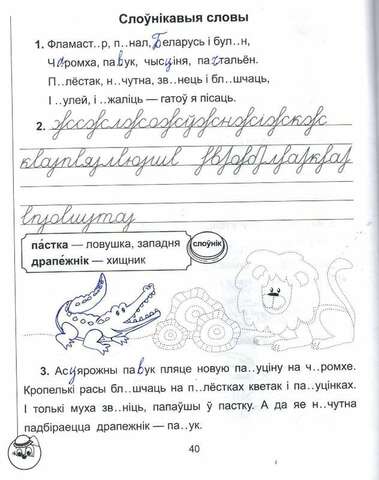 Слоўнікавыя словы
1. Фламаст..р, п..нал, Беларусь і бул..н,
Чаромха, павук, чысціня, паштальён.
П..лёстак, н..чутна, зв..нець і бл..шчаць,
І ..улей, і ..жаліць — гатоў я пісаць.
2.
пастка — ловушка, западня
драпежнік — хищник
слоўнік
3. Асцярожны павук пляце новую па..уціну на ч..ромхе.
Кропелькі расы бл..шчаць на п..лёстках кветак і па..уцінках.
І толькі муха зв..ніць, папаўшы ў пастку. А да яе н..чутна
падбіраецца драпежнік — па..ук.
40